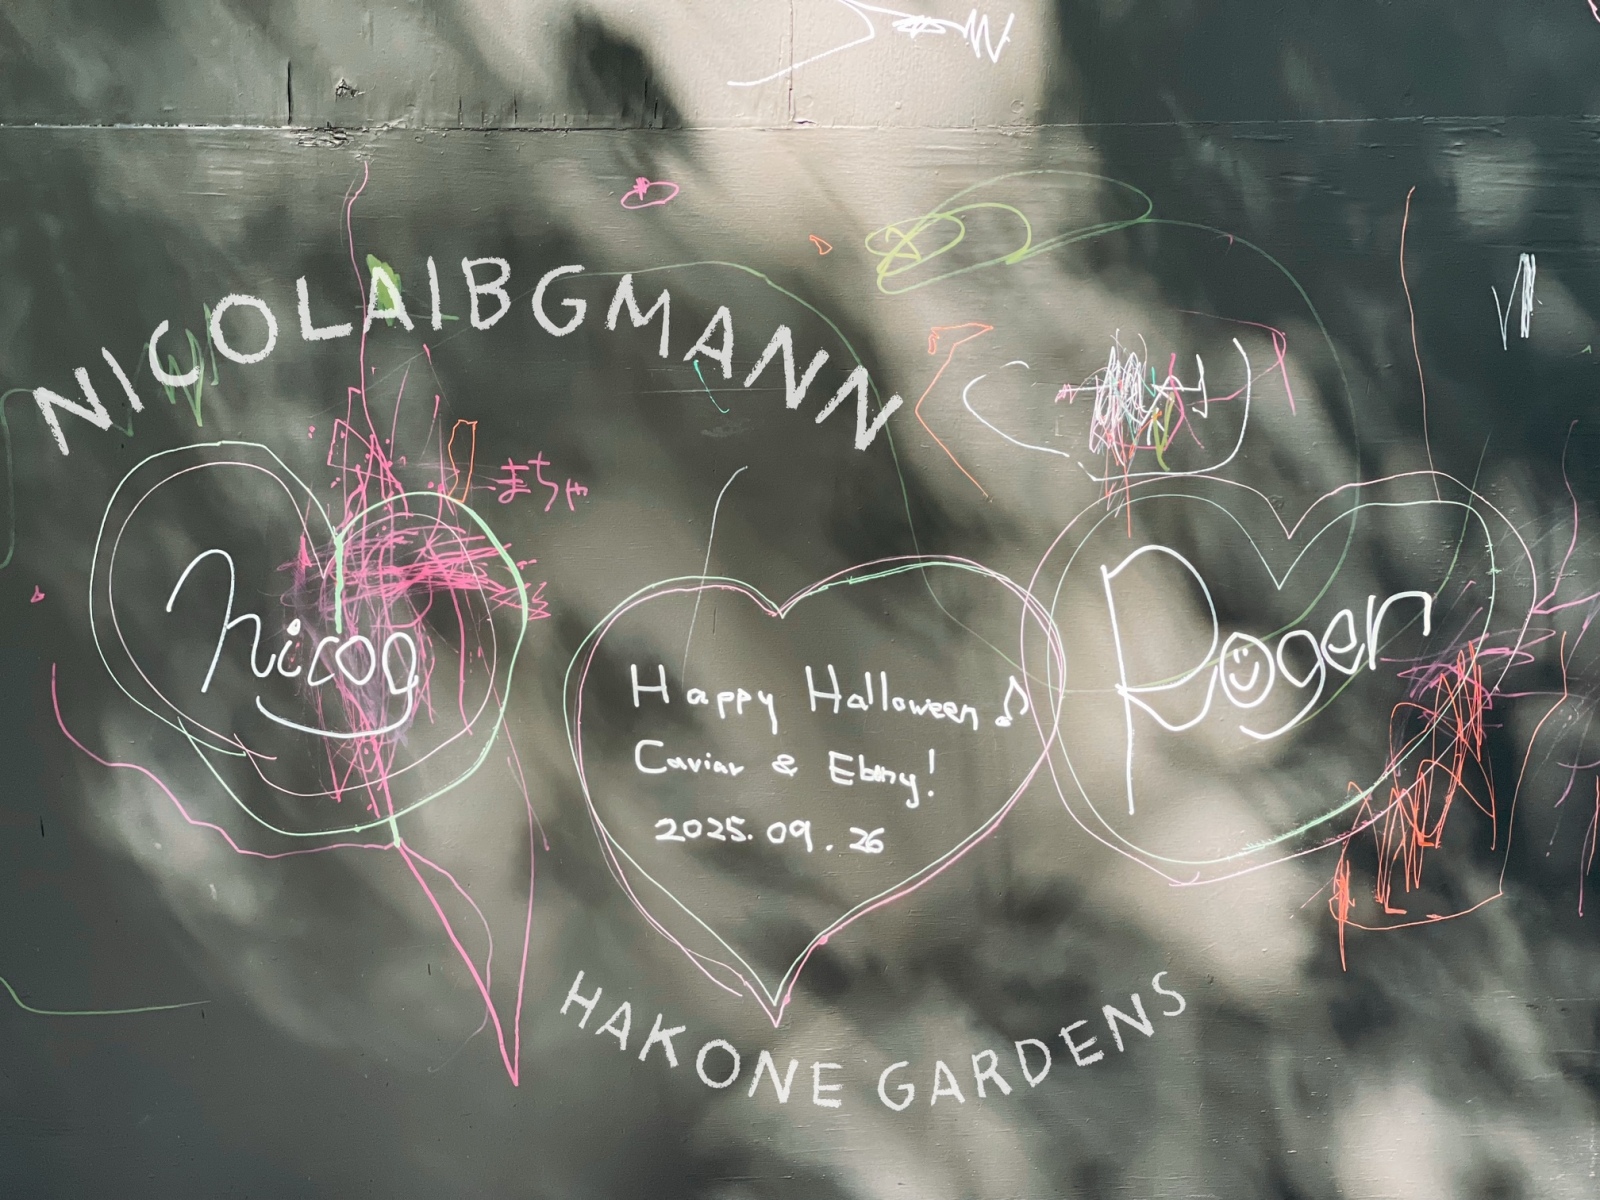 NICOLAIBGMANN
まちゃ
nicoo
Roger
Happy Halloween♪
Caviar & Ebony!
2025.09.26
HAKONE GARDENS